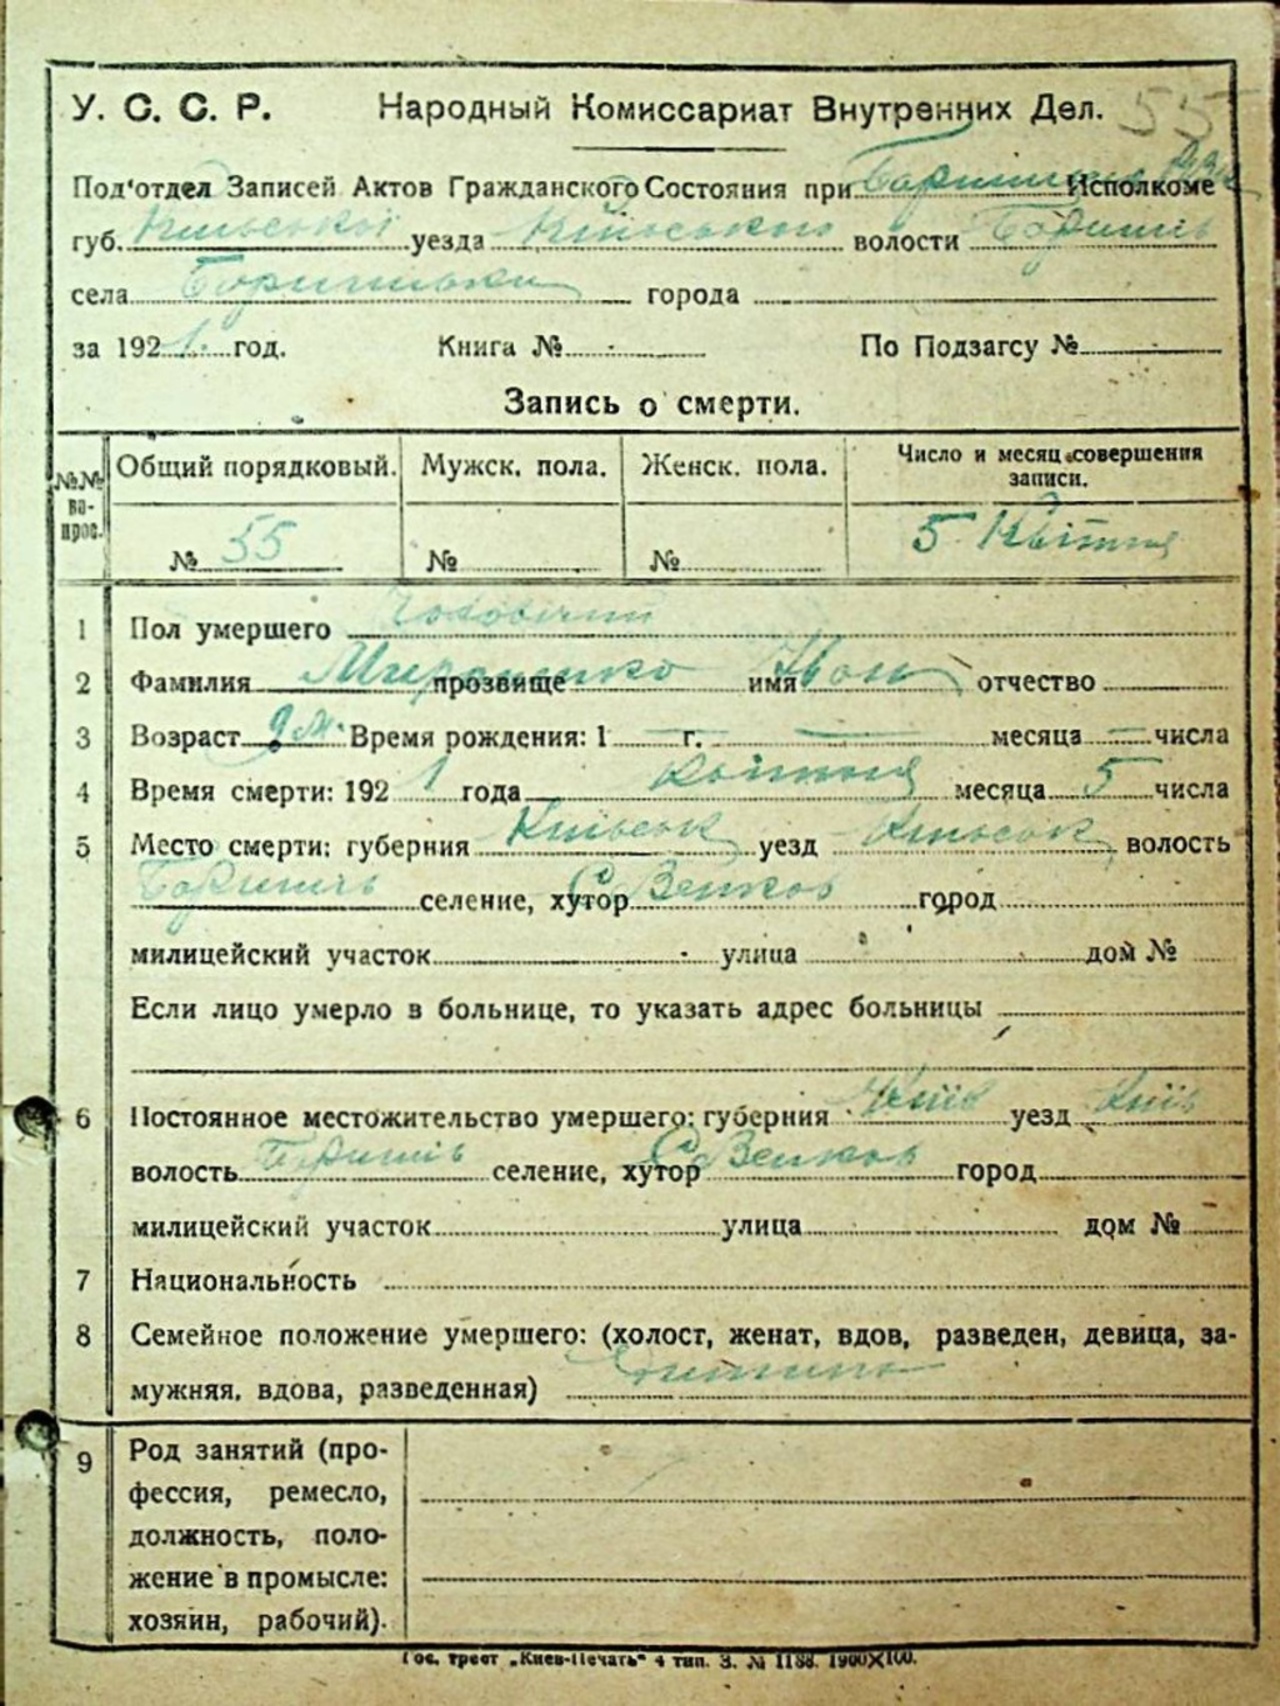 У. С. С. Р. Народный Комиссариат Внутренних Дел. 55
Под'отдел Записей Актов Гражданского Состояния при Исполкоме
губ. Київської уезда Київського волости Баришів
села города
за 1921. год. Книга № По Подзагсу №
Запись о смерти.
№№ во-прос. Общий порядковый. Мужск. пола. Женск. пола. Число и месяц совершения записи.
№ 55 № № 5 Квітня
1 Пол умершего Чоловічий
2 Фамилия Мироненко прозвище имя Иван отчество
3 Возраст 9 м. Время рождения: 1 г. месяца числа
4 Время смерти: 1921 года Квітня месяца 5 числа
5 Место смерти: губерния Київськ уезд Київськ волость
Баришів селение, хутор город
милицейский участок улица дом №
Если лицо умерло в больнице, то указать адрес больницы
6 Постоянное местожительство умершего: губерния Київ уезд Київ
волость Баришів селение, хутор город
милицейский участок улица дом №
7 Национальность
8 Семейное положение умершего: (холост, женат, вдов, разведен, девица, за-
мужняя, вдова, разведенная)
9 Род занятий (про-
фессия, ремесло,
должность, поло-
жение в промысле:
хозяин, рабочий).
Гос. трест „Киев-Печать“ 4 тип. З. № 1188. 1900X100.